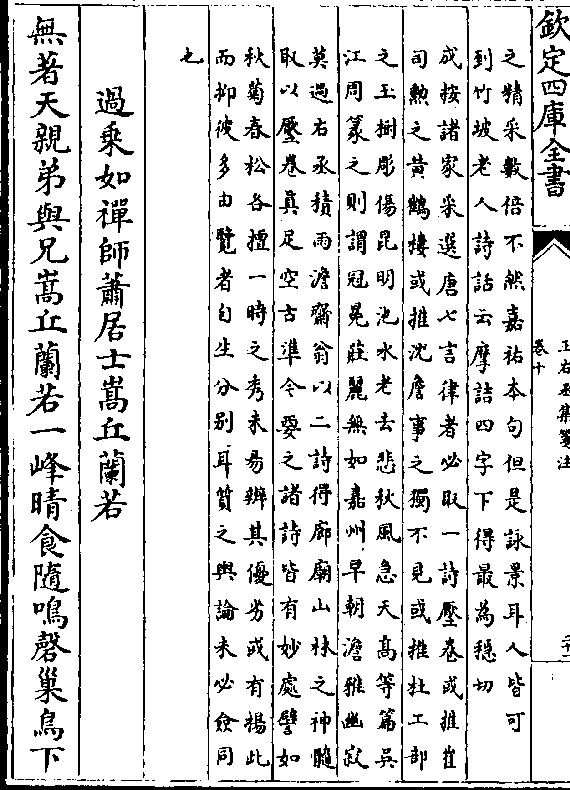 欽定四庫全書
王右丞集箋注
卷十
二十一
之精采數倍不然嘉祐本句但是詠景耳人皆可
到竹坡老人詩話云摩詰四字下得最為穩切
成按諸家采選唐七言律者必取一詩壓卷或推崔
司勲之黄鶴樓或推沈詹事之獨不見或推杜工部
之玉樹彫傷昆明池水老去悲秋風急天高等篇吳
江周篆之則謂冠冕莊麗無如嘉州早朝澹雅幽寂
莫過右丞積雨澹齋翁以二詩得廊廟山林之神髓
取以壓卷真足空古準今要之諸詩皆有妙處譬如
秋菊春松各擅一時之秀未易辨其優劣或有揚此
而抑彼多由覽者自生分别耳質之輿論未必僉同
也
過乘如禪師蕭居士嵩丘蘭若
無著天親弟與兄嵩丘蘭若一峰晴食隨鳴磬巢烏下